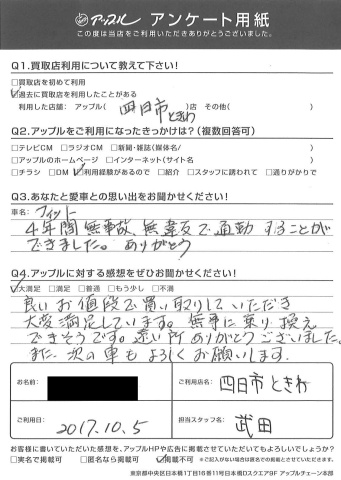 アップル アンケート用紙
この度は当店をご利用いただきありがとうございました。
Q1.買取店利用について教えて下さい!
□買取店を初めて利用
☑過去に買取店を利用したことがある
利用した店舗: アップル( 四日市ときわ )店 その他( )
Q2.アップルをご利用になったきっかけは?(複数回答可)
□テレビCM □ラジオCM □新聞・雑誌(媒体名/ )
□アップルのホームページ □インターネット(サイト名 )
□チラシ □DM ☑利用経験があるので □紹介 □スタッフに誘われて □通りがかりで
Q3.あなたと愛車との思い出をお聞かせください!
車名: フィット
4年間無事故、無違反で通勤することが
できました。ありがとう
Q4.アップルに対する感想をぜひお聞かせください!
☑大満足 □満足 □普通 □もう少し □不満
良いお値段で買い取りしていただき
大変満足しています。無事に乗り換え
できそうです。遠い所ありがとうございました。
また、次の車もよろしくお願いします。
お名前:
ご利用店名: 四日市ときわ
ご利用日: 2017.10.5
担当スタッフ名: 武田
お客様に書いていただいた感想を、アップルHPや広告に掲載させていただいてもよろしいでしょうか?
□実名で掲載可 □匿名なら掲載可 ☑掲載不可 ※ご記入がない場合は匿名での掲載とさせていただきます。
東京都中央区日本橋1丁目16番11号日本橋Dスクエア9F アップルチェーン本部